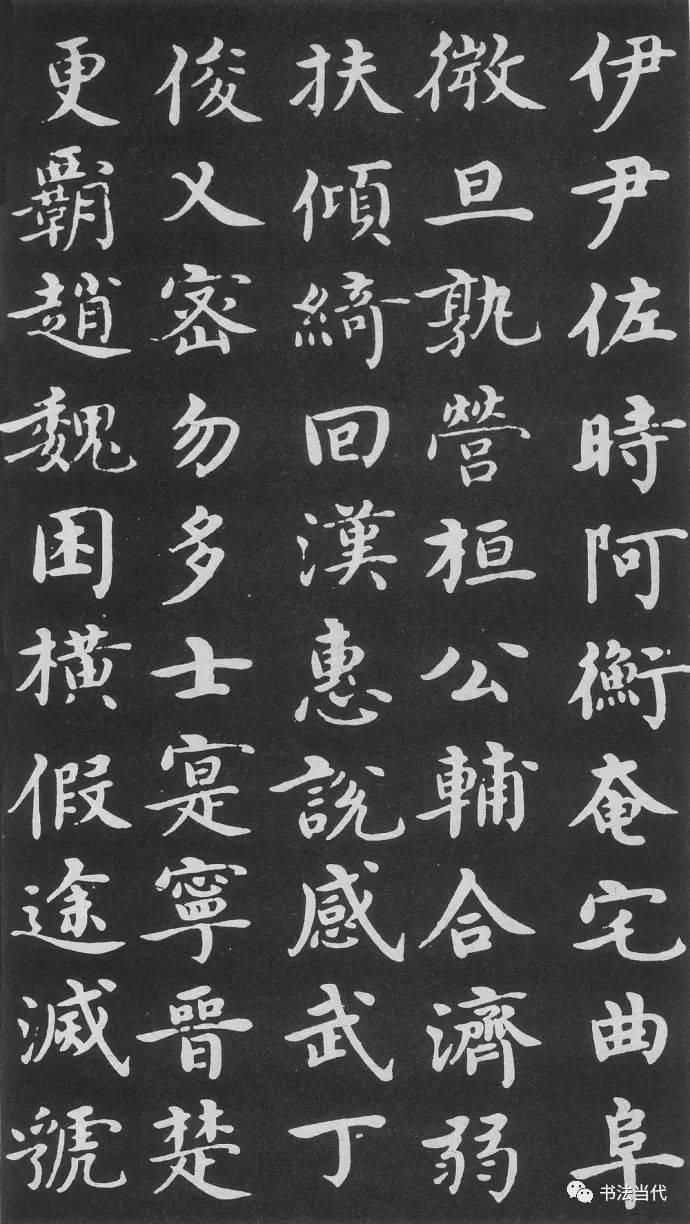 伊尹佐時阿衡奄宅曲阜
微旦孰營桓公輔合濟弱
扶傾綺回漢惠說感武丁
俊乂密勿多士寔寧晉楚
更覇趙魏困橫假途滅虢
书法当代